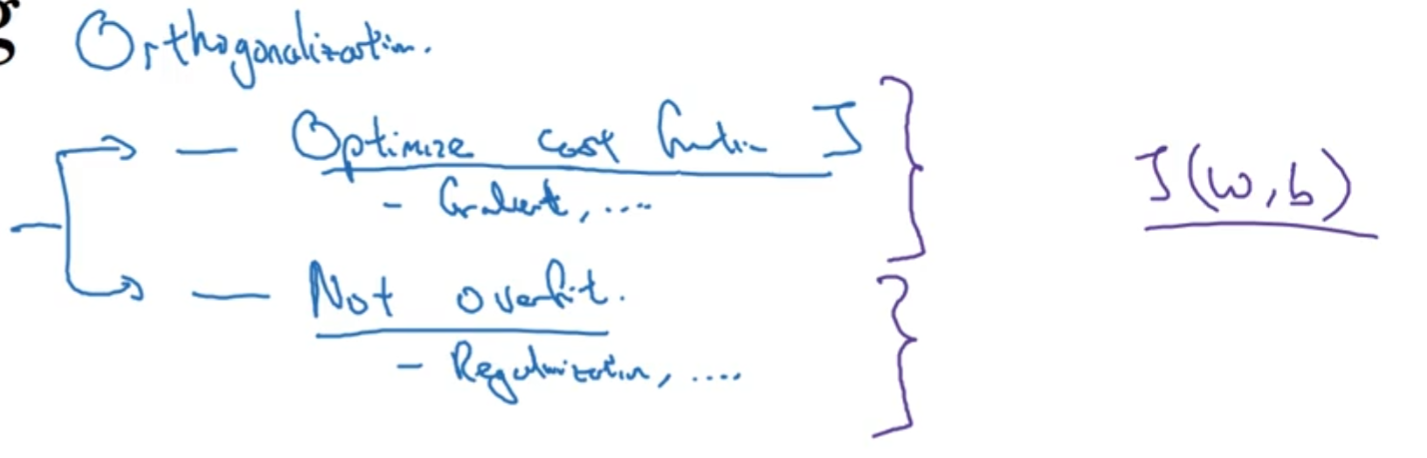 g
Orthogonalization.
— Optimize cost function J
- Gradient, ....
J(w,b)
— Not overfit.
- Regularization, ....